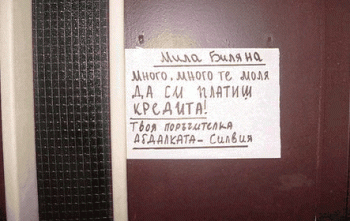 Мила Биляна
Много, много те моля
ДА СИ ПЛАТИШ
КРЕДИТА!
Твоя поръчителка
АБДАЛКАТА – Силвия